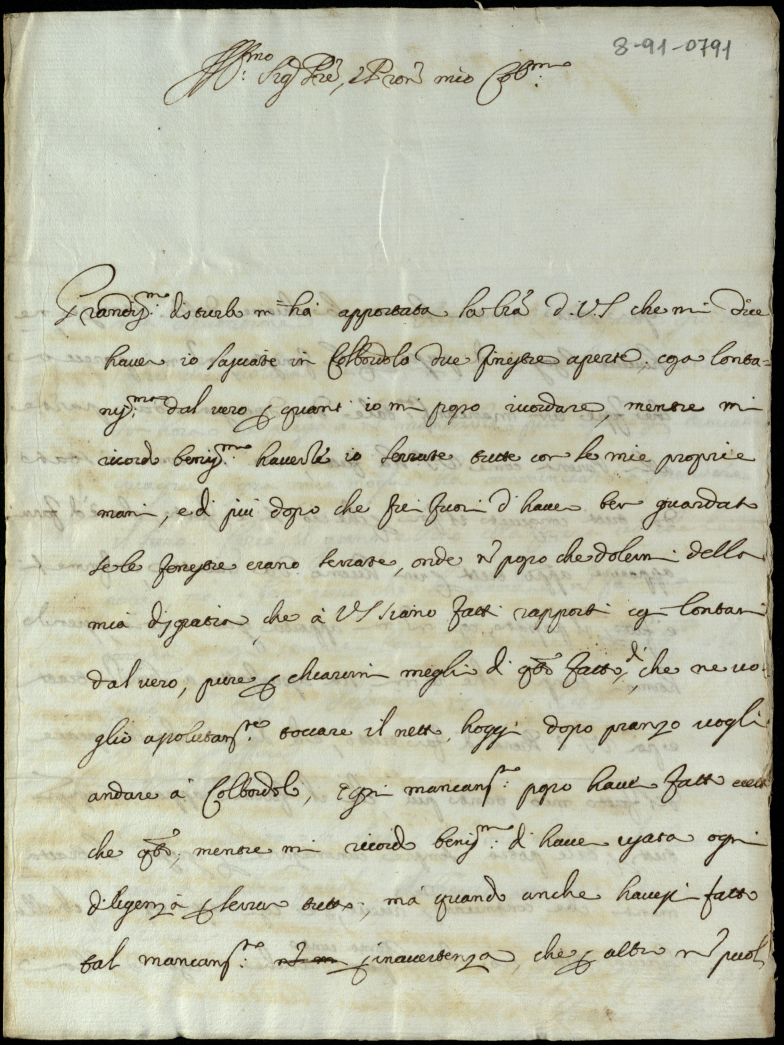 8-91-0791
Ill.mo Sig.r Pre, e Pron mio Col.mo
Grandis.mo disturbo m'ha apportata la lra di V.S che mi dice
haver io lasciate in Colbordolo due fenestre aperte cosa lonta=
nis.ma dal vero per quant io mi posso ricordare, mentre mi
ricordo benis.mo haverle io serrate tutte con le mie proprie
mani, e di più dopo che fui fuori d'haver ben guardato
se le fenestre erano serrate, onde nō posso che dolermi della
mia disgratia che à VS siano fatti rapporti così lontani
dal vero, pure per chiarirmi meglio di qsto fatto, di che ne vo-
glio asolutams.te toccare il netto, hoggi dopo pranzo voglio
andare à Colbordolo, ogni mancams.to posso haver fatto
che qsto, mentre mi ricordo benis.mo di haver usata ogni
diligenza per serrar tutto, mà quando anche havessi fatto
tal mancams.to per inavertenza, che per altro nō puol